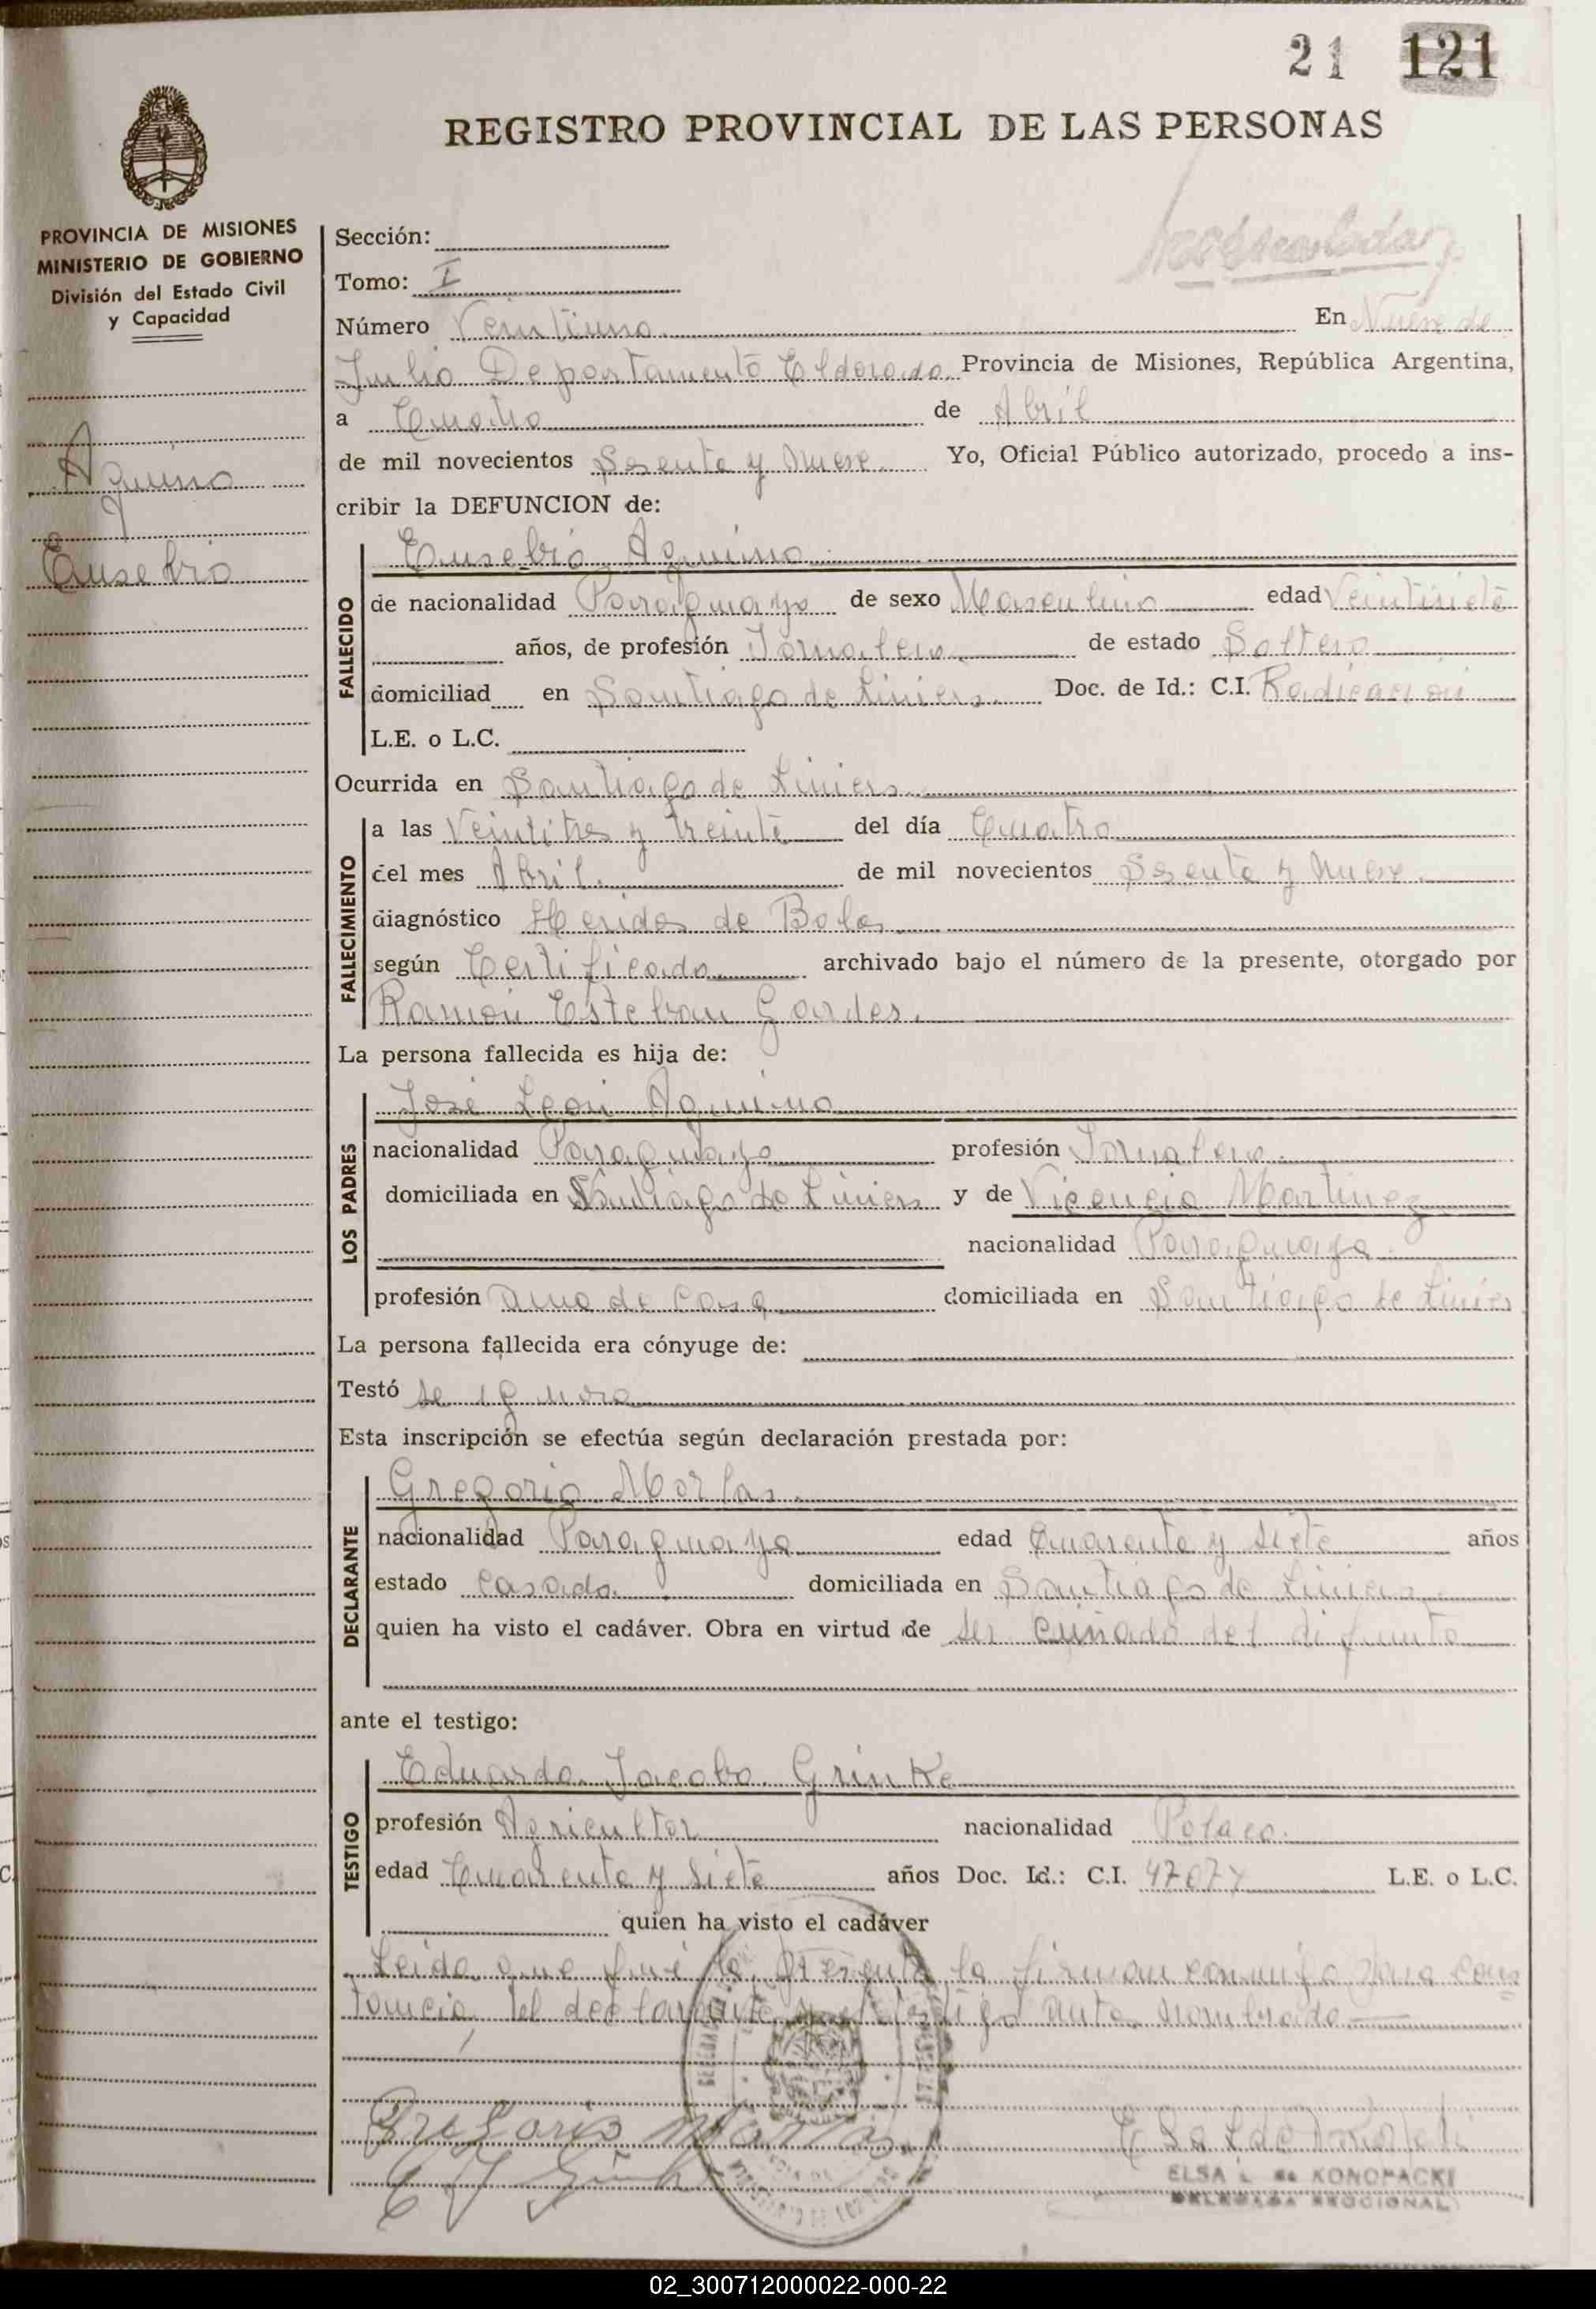 21 121
REGISTRO PROVINCIAL DE LAS PERSONAS
PROVINCIA DE MISIONES
MINISTERIO DE GOBIERNO
División del Estado Civil
y Capacidad
Aquino
Eusebio
Sección:
Tomo: I
Número Veintiuno. En Nueve de
Julio Departamento Eldorado. Provincia de Misiones, República Argentina,
a Cuatro de Abril
de mil novecientos Sesenta y Nueve. Yo, Oficial Público autorizado, procedo a ins-
cribir la DEFUNCION de:
Eusebio Aquino
FALLECIDO
de nacionalidad Paraguayo de sexo Masculino edad Veintisiete
años, de profesión Jornalero. de estado Soltero
domiciliad en Santiago de Liniers. Doc. de Id.: C.I. Radicación
L.E. o L.C.
Ocurrida en Santiago de Liniers.
FALLECIMIENTO
a las Veintitres y treinta del día Cuatro
del mes Abril. de mil novecientos Sesenta y Nueve.
diagnóstico Heridas de Balas
según Certificado archivado bajo el número de la presente, otorgado por
Ramón Esteban Gardes.
La persona fallecida es hija de:
José León Aquino
LOS PADRES
nacionalidad Paraguayo profesión Jornalero.
domiciliada en Santiago de Liniers y de Vicencia Martinez
nacionalidad Paraguaya.
profesión ama de casa domiciliada en Santiago de Liniers
La persona fallecida era cónyuge de:
Testó se ignora
Esta inscripción se efectúa según declaración prestada por:
Gregorio
DECLARANTE
nacionalidad Paraguayo edad Cuarenta y siete años
estado Casado. domiciliada en Santiago de Liniers
quien ha visto el cadáver. Obra en virtud de ser cuñado del difunto
ante el testigo:
Eduardo Jacobo Grinke
TESTIGO
profesión Agricultor nacionalidad Polaco.
edad Cuarenta y siete años Doc. Id.: C.I. L.E. o L.C.
quien ha visto el cadáver
Leida que fué la presente la firman conmigo para cons
tancia, el declarante y el testigo ante nombrado
Gregorio
ELSA L. de KONOPACKI
DELEGADA REGIONAL
02_300712000022-000-22